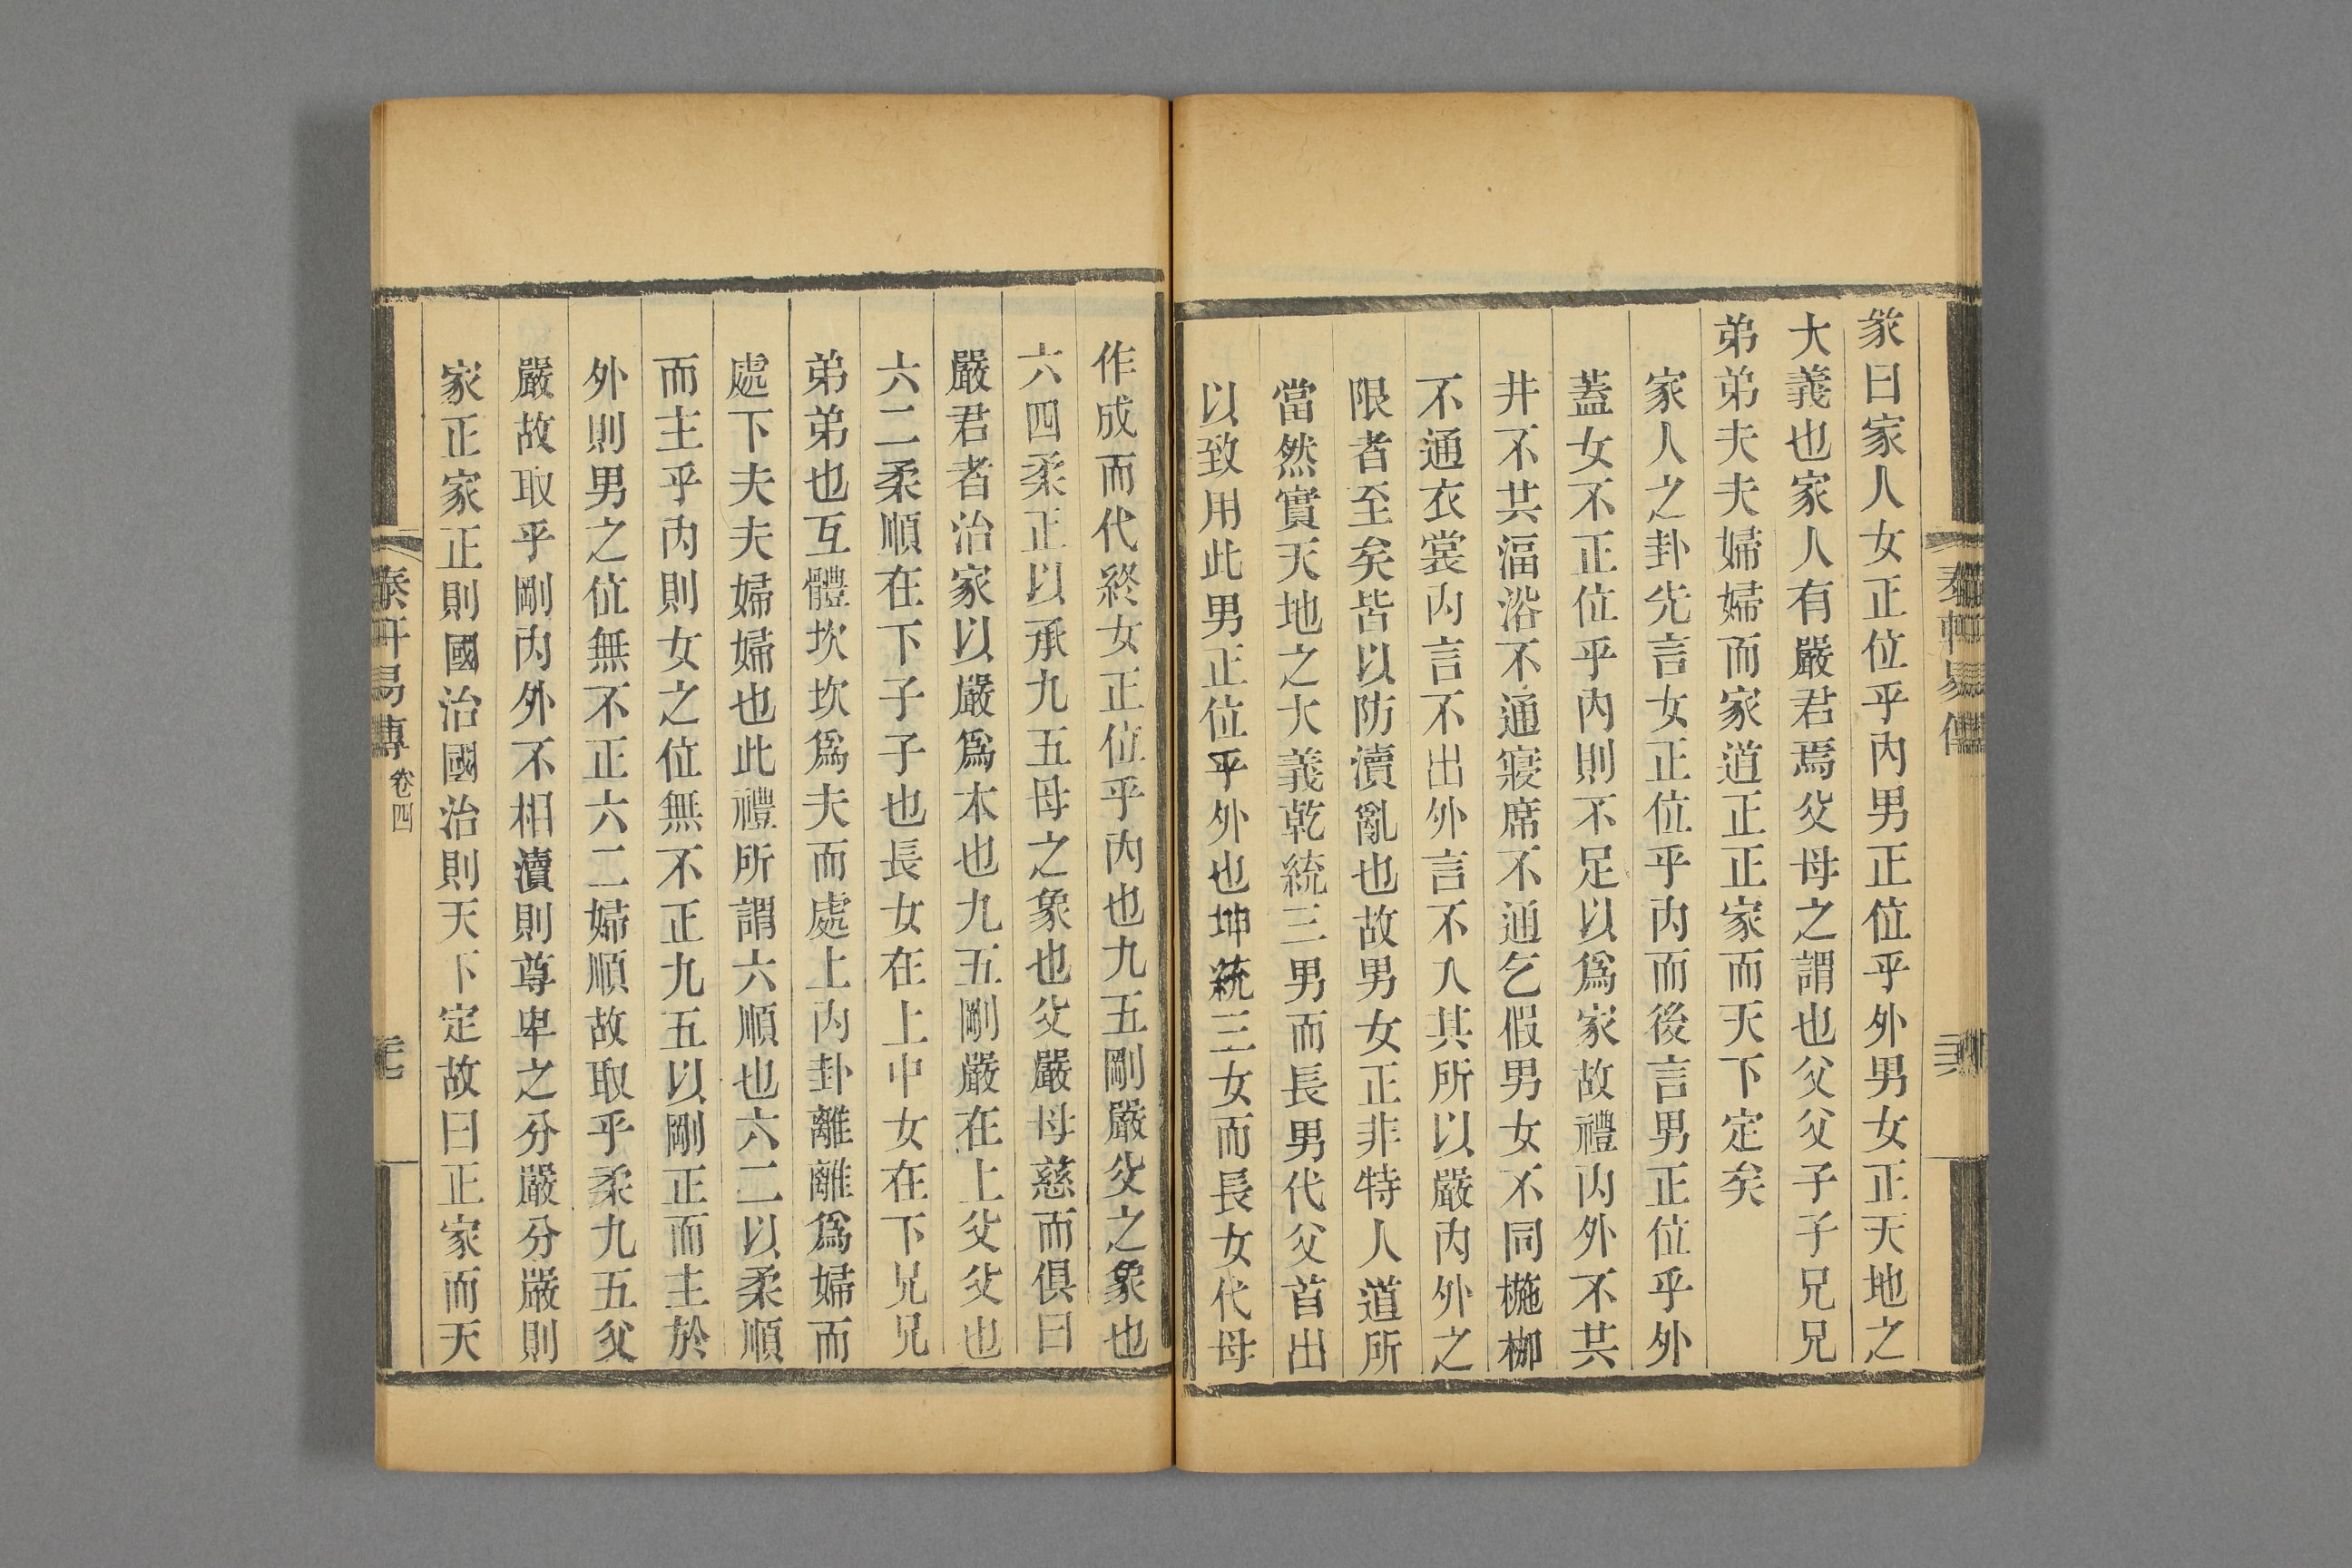 彖曰家人女正位乎內男正位乎外男女正天地之
大義也家人有嚴君焉父母之謂也父父子子兄兄
弟弟夫夫婦婦而家道正正家而天下定矣
家人之卦先言女正位乎內而後言男正位乎外
蓋女不正位乎內則不足以爲家故禮內外不共
井不共湢浴不通寢席不通乞假男女不同椸枷
不通衣裳內言不出外言不入其所以嚴內外之
限者至矣皆以防瀆亂也故男女正非特人道所
當然實天地之大義乾統三男而長男代父首出
以致用此男正位乎外也坤統三女而長女代母
作成而代終女正位乎內也九五剛嚴父之象也
六四柔正以承九五母之象也父嚴母慈而俱曰
嚴君者治家以嚴爲本也九五剛嚴在上父父也
六二柔順在下子子也長女在上中女在下兄兄
弟弟也互體坎坎爲夫而處上內卦離離爲婦而
處下夫夫婦婦也此禮所謂六順也六二以柔順
而主乎內則女之位無不正九五以剛正而主於
外則男之位無不正六二婦順故取乎柔九五父
嚴故取乎剛內外不相瀆則尊卑之分嚴分嚴則
家正家正則國治國治則天下定故曰正家而天
易傳 卷四